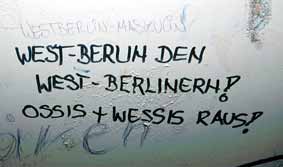 WESTBERLIN-MASKULIN
WEST-BERLIN DEN
WEST-BERLINERN!
OSSIS + WESSIS RAUS!